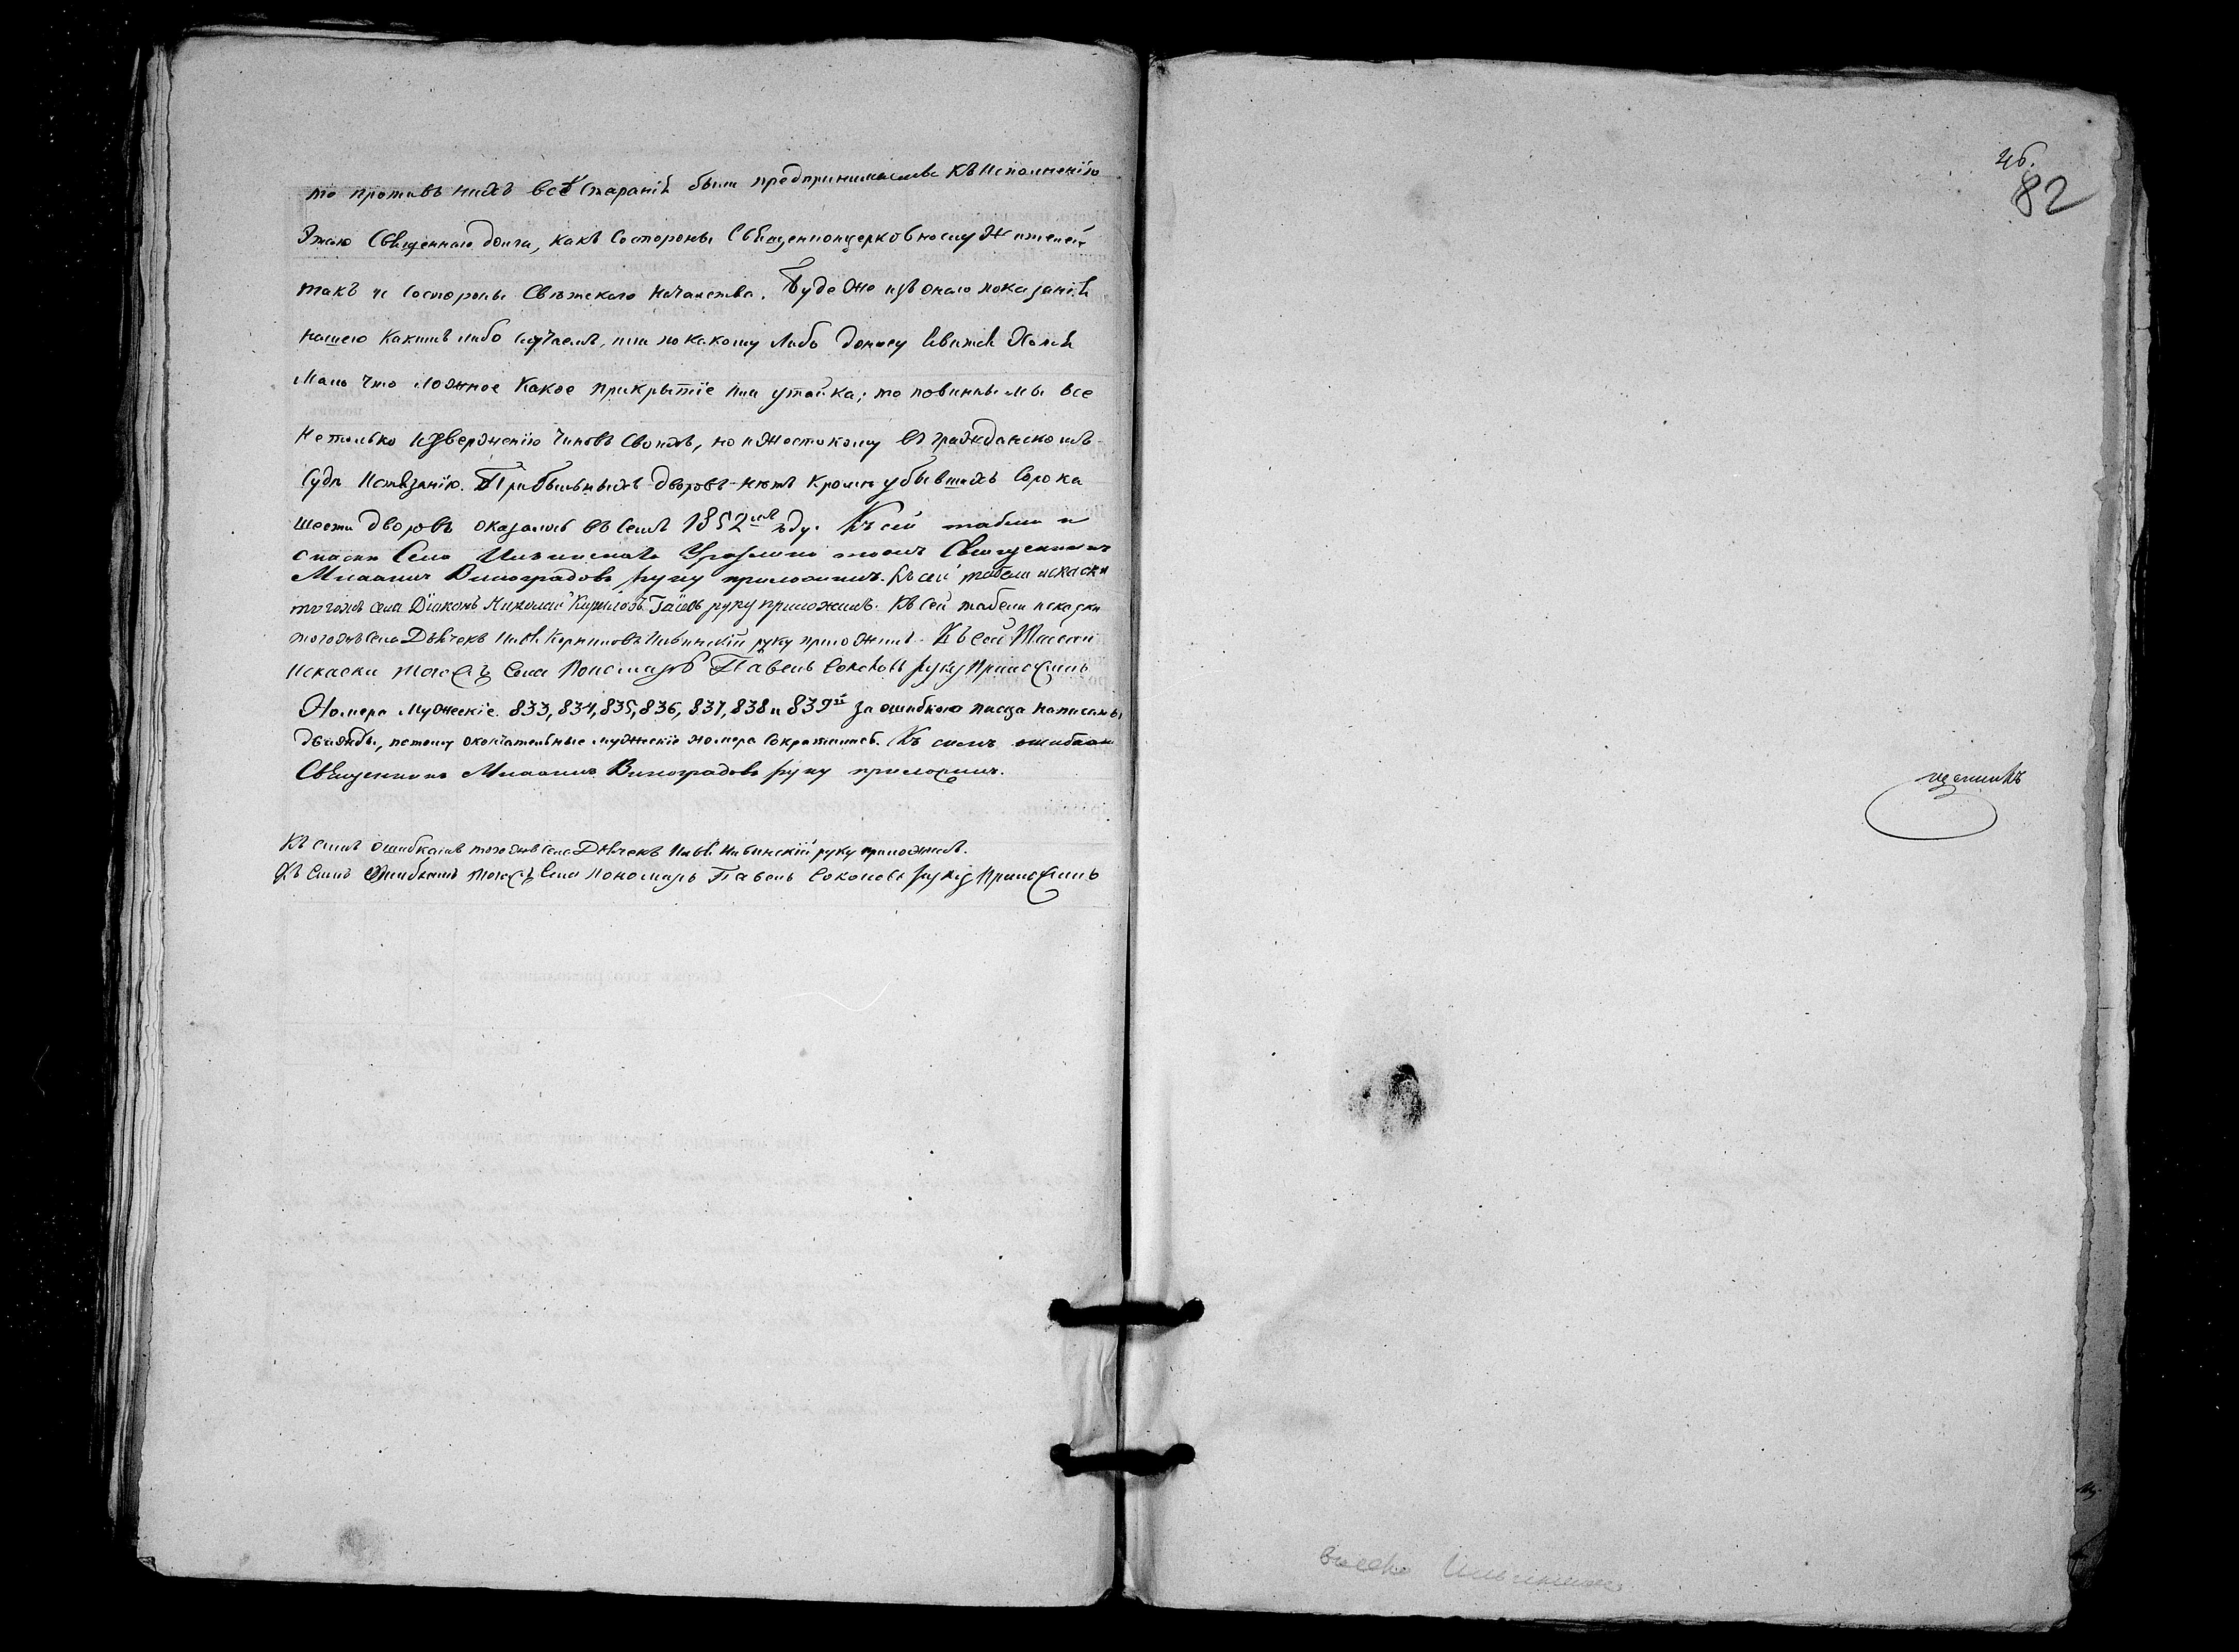 то противъ нихъ всѣ старанія были предпринимаемы къ исполненію
этаго священнаго долга, какъ состороны священноцерковнослужителей
такъ и состороны свѣтскаго начальства. Буде же изъ онаго показанія
нашего какимъ либо случаемъ, или по какому либо доносу явится хотя
мало что ложное какое прикрытіе или утайка; то повинны мы все
нетолько изверженію чиновъ своихъ, но и жестокому въ гражданскомъ
судѣ истязанію. Прибыльныхъ дворовъ нѣтъ кромѣ убывшихъ сорока
шести дворовъ оказалось въ семъ 1852мъ году. Къ сей табели и
скаски села Ильинскаго Священникъ
Виноградовъ руку приложилъ. Къ сей табели и скаски
тогожъ села Діаконъ Николай Кириловъ руку приложилъ. Къ сей табели и скаски
тогожъ села Дьячекъ Ильинскій руку приложилъ. Къ сей табели
и скаски тогожъ села Пономарь Павелъ Соколовъ руку приложилъ
Номера мужескіе 833, 834, 835, 836, 837, 838 и 839й за ошибкою писца написаны
дважды, потому окончательные мужескіе номера сократились. Къ симъ ошибкамъ
Священникъ Виноградовъ руку приложилъ.
Къ симъ ошибкамъ тогожъ села Дьячекъ Ильинскій руку приложилъ.
Къ симъ ошибкамъ тогожъ села Пономарь Павелъ Соколовъ руку приложилъ
82
щенникъ